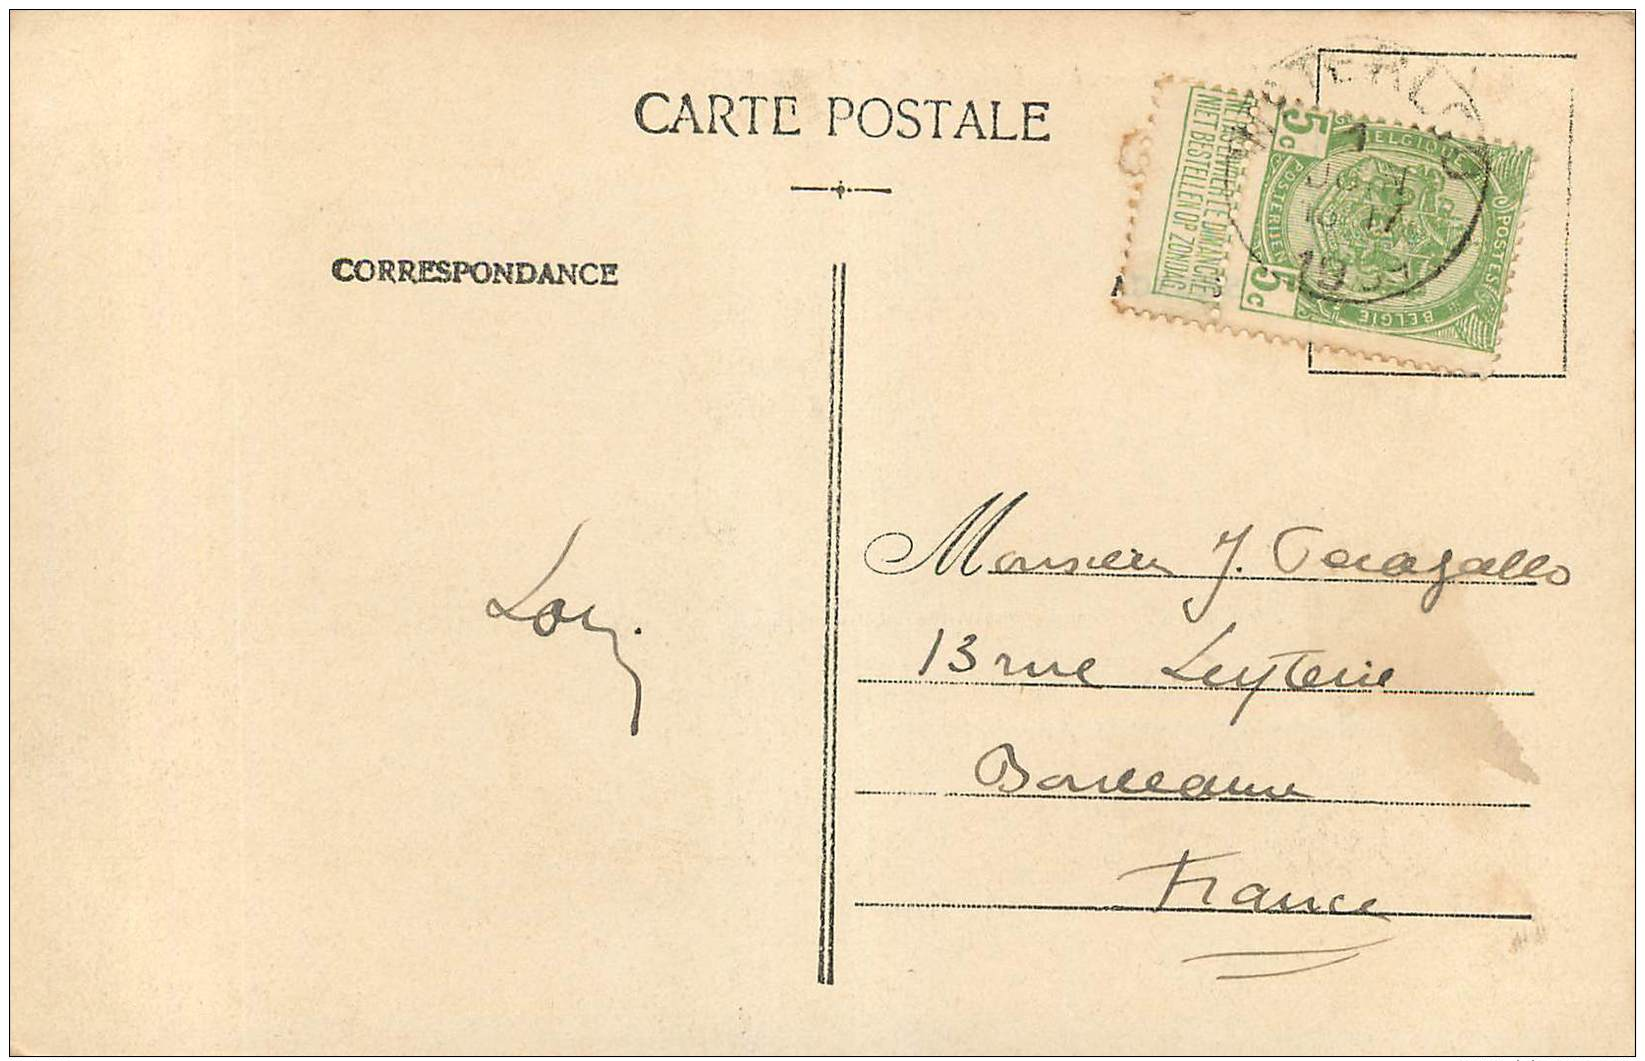 CARTE POSTALE
CORRESPONDANCE
NE PAS LIVRER LE DIMANCHE
NIET BESTELLEN OP ZONDAG
5c
5c
BELGIQUE
POSTERIJEN
POSTES
BELGIË
1
JUIN
Monsieur J. Peragallo
13 rue Leyterie
Bordeaux
France